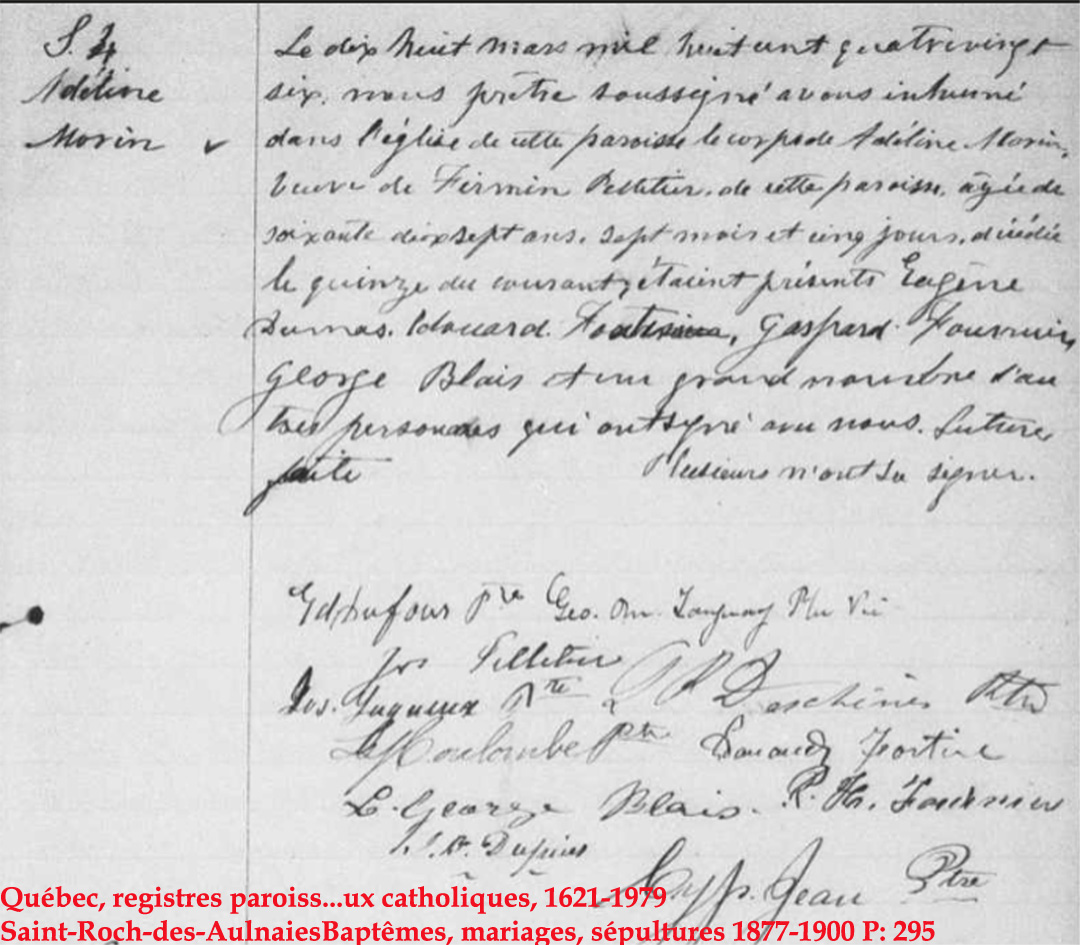 S. 4
Adéline
Morin
Le dix huit mars mil huit cent quatrevingt
six, nous prêtre soussigné avons inhumé
dans l'église de cette paroisse le corps de Adéline Morin,
veuve de Firmin Pelletier, de cette paroisse, agée de
soixante dix sept ans, sept mois et cinq jours, décédée
le quinze du courant, étaient présents Eugène
Dumas, Edouard, Gaspard Fournier,
George Blais et un grand nombre d'au
tres personnes qui ont signé avec nous. Lecture
faite Plusieurs n'ont su signer.
Ed Dufour Ptre Geo. Tanguay Ptre
Jos Pelletier
Jos. Gagneux Ptre Deschênes Ptre
Coulombe Ptre Fortin
L. George Blais. P. Fournier
Dupuis
Cyp. Jean Ptre
Québec, registres paroiss...ux catholiques, 1621-1979
Saint-Roch-des-AulnaiesBaptêmes, mariages, sépultures 1877-1900 P: 295